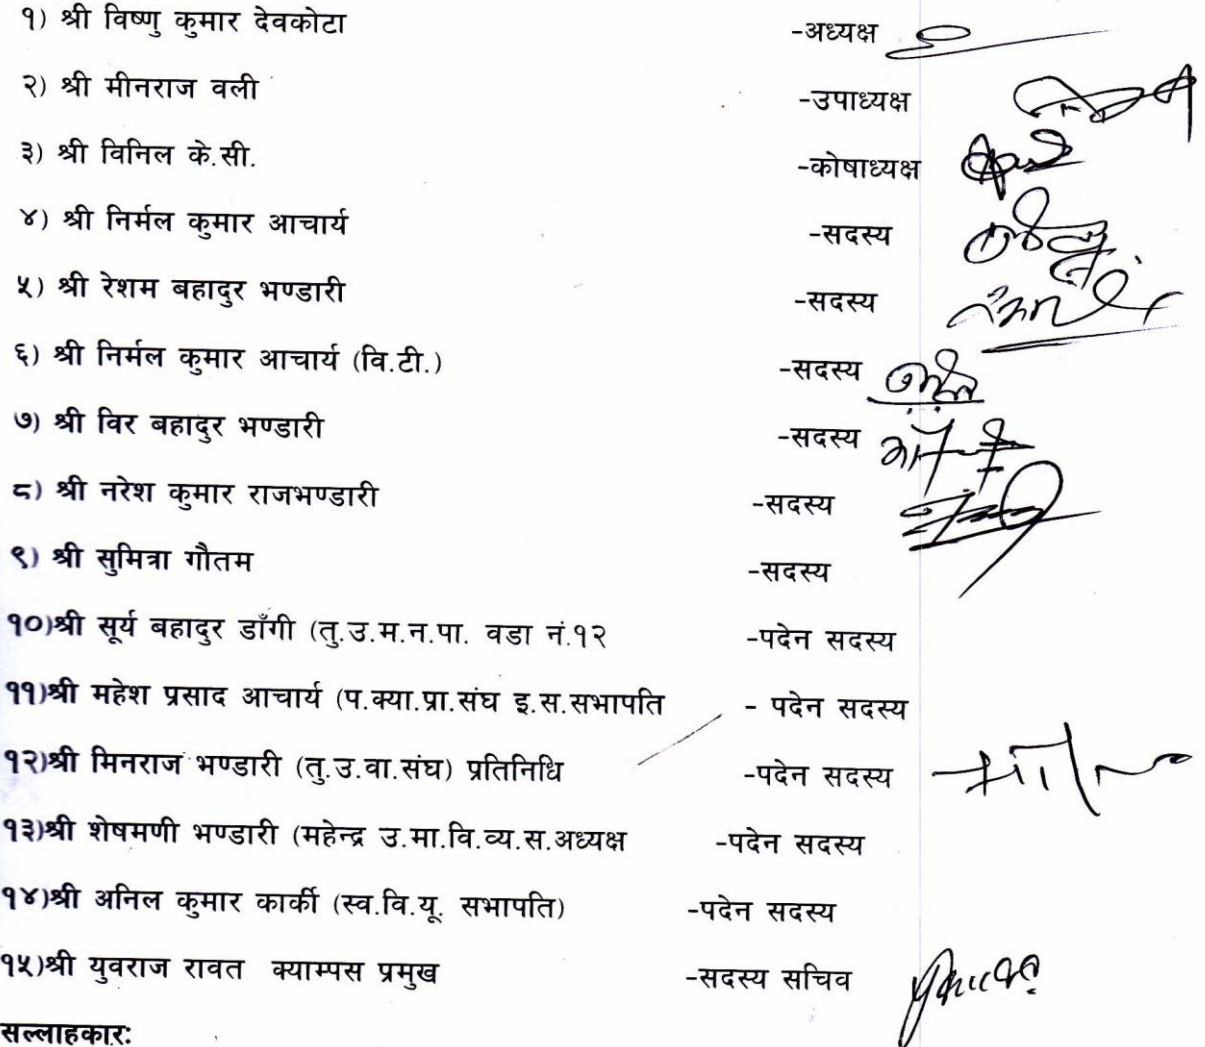 १) श्री विष्णु कुमार देवकोटा -अध्यक्ष
२) श्री मीनराज वली -उपाध्यक्ष
३) श्री विनिल के.सी. -कोषाध्यक्ष
४) श्री निर्मल कुमार आचार्य -सदस्य
५) श्री रेशम बहादुर भण्डारी -सदस्य
६) श्री निर्मल कुमार आचार्य (वि.टी.) -सदस्य
७) श्री विर बहादुर भण्डारी -सदस्य
८) श्री नरेश कुमार राजभण्डारी -सदस्य
९) श्री सुमित्रा गौतम -सदस्य
१०)श्री सूर्य बहादुर डाँगी (तु.उ.म.न.पा. वडा नं.१२ -पदेन सदस्य
११)श्री महेश प्रसाद आचार्य (प.क्या.प्रा.संघ इ.स.सभापति - पदेन सदस्य
१२)श्री मिनराज भण्डारी (तु.उ.वा.संघ) प्रतिनिधि -पदेन सदस्य
१३)श्री शेषमणी भण्डारी (महेन्द्र उ.मा.वि.व्य.स.अध्यक्ष -पदेन सदस्य
१४)श्री अनिल कुमार कार्की (स्व.वि.यू. सभापति) -पदेन सदस्य
१५)श्री युवराज रावत क्याम्पस प्रमुख -सदस्य सचिव
सल्लाहकार: